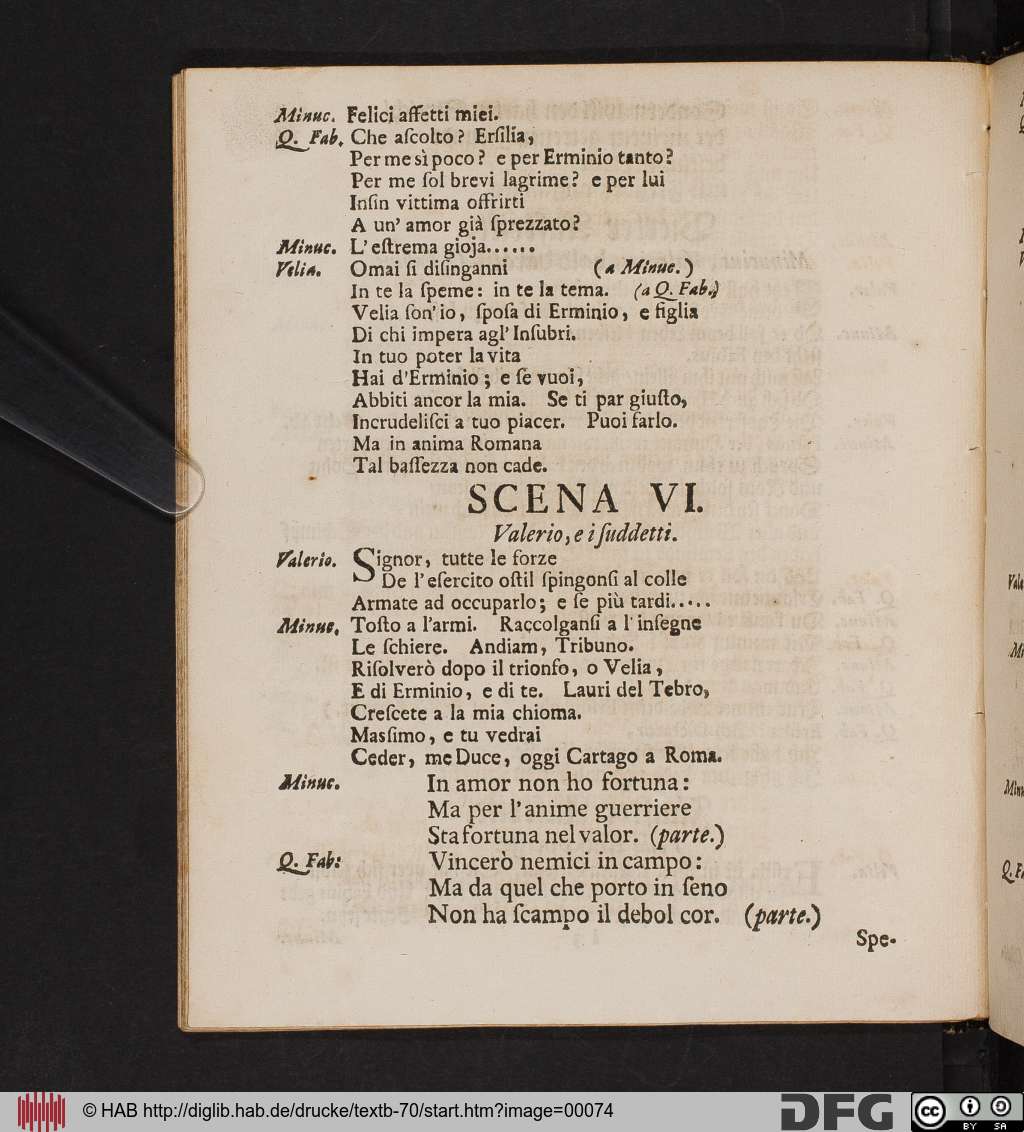 Minuc. Felici affetti miei.
Q. Fab. Che aſcolto? Erſilia,
Per me sì poco? e per Erminio tanto?
Per me ſol brevi lagrime? e per lui
Inſin vittima offrirti
A un' amor già ſprezzato?
Minuc. L' eſtrema gioja......
Velia. Omai ſi diſinganni (a Minuc.)
In te la ſpeme: in te la tema. (a Q. Fab.)
Velia ſon' io, ſpoſa di Erminio, e figlia
Di chi impera agl' Inſubri.
In tuo poter la vita
Hai d'Erminio; e ſe vuoi,
Abbiti ancor la mia. Se ti par giuſto,
Incrudeliſci a tuo piacer. Puoi farlo.
Ma in anima Romana
Tal baſſezza non cade.
SCENA VI.
Valerio, e i ſuddetti.
Valerio. Signor, tutte le forze
De l' eſercito oſtil ſpingonſi al colle
Armate ad occuparlo; e ſe più tardi.....
Minuc. Toſto a l'armi. Raccolganſi a l' inſegne
Le ſchiere. Andiam, Tribuno.
Riſolverò dopo il trionfo, o Velia,
E di Erminio, e di te. Lauri del Tebro,
Creſcete a la mia chioma.
Maſſimo, e tu vedrai
Ceder, me Duce, oggi Cartago a Roma.
Minuc. In amor non ho fortuna:
Ma per l' anime guerriere
Sta fortuna nel valor. (parte.)
Q. Fab: Vincerò nemici in campo:
Ma da quel che porto in ſeno
Non ha ſcampo il debol cor. (parte.)
Spe-
© HAB http://diglib.hab.de/drucke/textb-70/start.htm?image=00074
DFG
cc BY SA